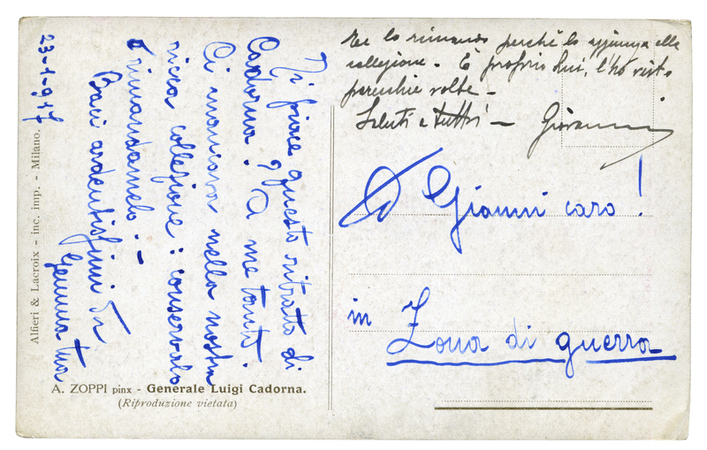 23-1-917
Ti piace questo ritratto di
Cadorna? A me tanto!
Ci mancava nella nostra
ricca collezione: conservalo
o rimandamelo. -
Baci ardentissimi
Gemma tua
Te lo rimando perchè lo aggiunga alla
collezione. È proprio lui, l'ho visto
parecchie volte -
Saluti a tutti - Giovanni
A Gianni caro!
in Zona di guerra
Alfieri & Lacroix - inc. imp. - Milano.
A. ZOPPI pinx - Generale Luigi Cadorna.
(Riproduzione vietata)